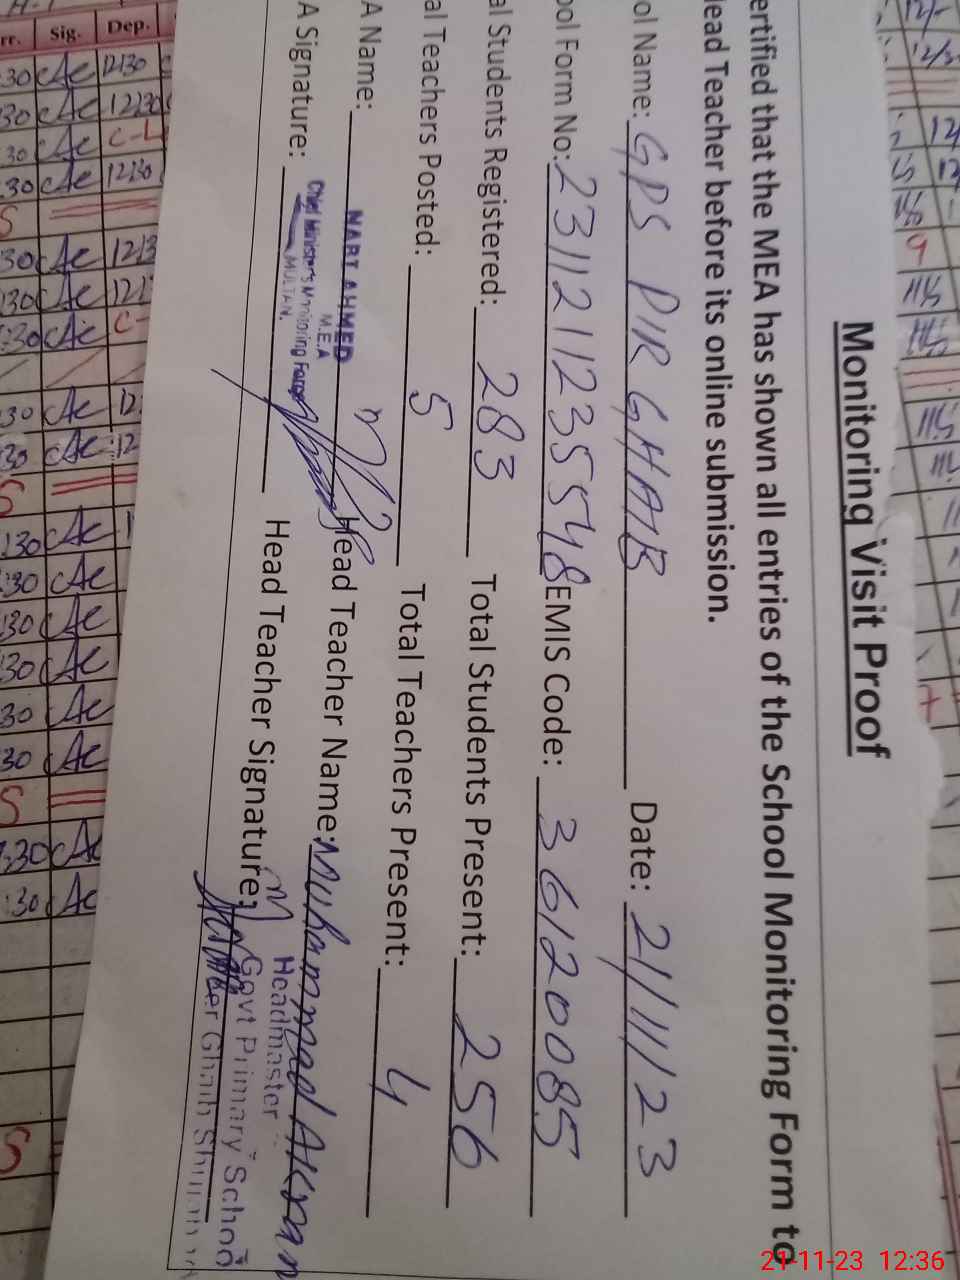 Monitoring Visit Proof
ertified that the MEA has shown all entries of the School Monitoring Form to
lead Teacher before its online submission.
ol Name: GPS PIR GHAIB Date: 21/11/23
ool Form No: 23112112355548 EMIS Code: 36120085
al Students Registered: 283 Total Students Present: 256
al Teachers Posted: 5 Total Teachers Present: 4
A Name: NABI AHMED Head Teacher Name: Muhammad Akram
M.E.A
Chief Minister's Monitoring Force
MULTAN.
A Signature: Head Teacher Signature:
Headmaster
Govt Primary School
Ghaib
rr. Sig. Dep.
30 Ac 12130
30 Ac 12230
30 Ac C-L
30 Ac 12130
S
30 Ac 1213
30 Ac 121
:30 Ac C-
30 Ac 12
30 Ac 12
S
130 Ac 1
:30 Ac
130 Ac
30 Ac
30 Ac
30 Ac
S
:30 Ac
:30 Ac
S
21-11-23 12:36